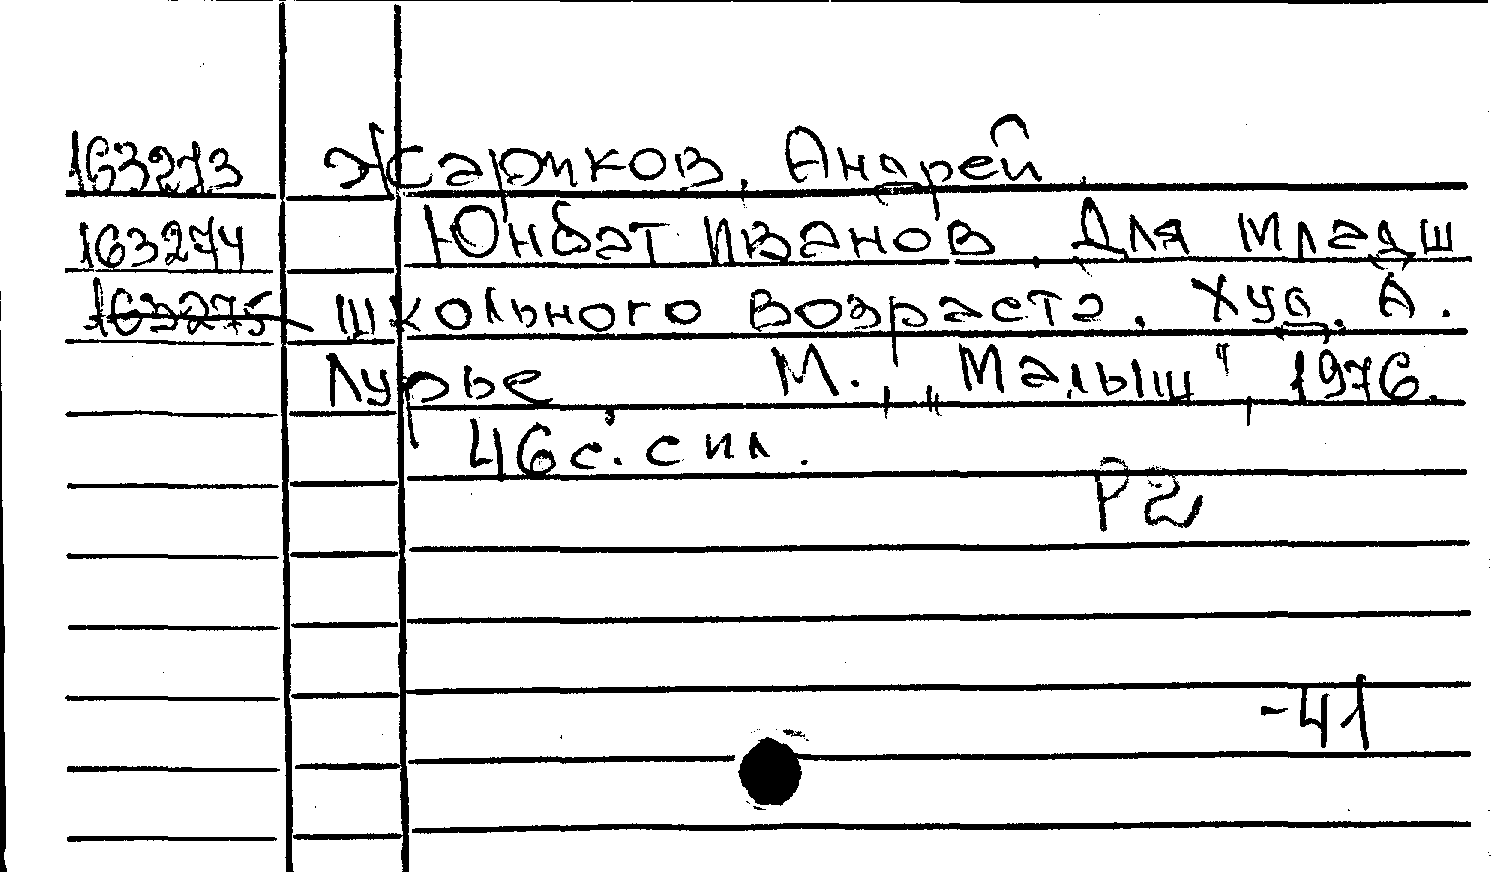 163273 Жариков, Андрей.
163274 Юнбат Иванов. Для младш
163275 школьного возраста. Худ. А.
Лурье М., „Малыш", 1976.
46 с. с ил.
Р2
-41